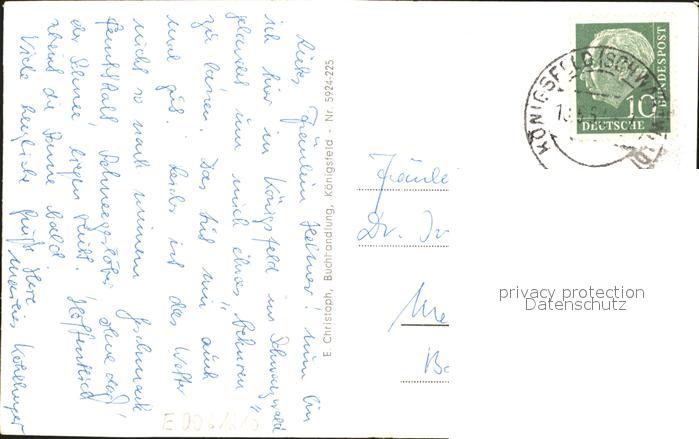 Liebes Fräulein Helmer! Nun bin
ich hier in Königsfeld im Schwarzwald
gelandet, um mich etwas
zu lassen. Das tut mir auch
mal gut. Leider ist das Wetter
nicht so nach meinem Geschmack
feuchtkalt, Schneegestöber, ohne daß
der Schnee liegen bleibt. Hoffentlich
scheint die Sonne bald.
Viele herzliche Grüße Ihre
E. Christoph, Buchhandlung, Königsfeld - Nr. 5924-225
DEUTSCHE
BUNDESPOST
10
KÖNIGSFELD (SCHWARZW
Fräule
Dr. Ir
Ba
privacy protection
Datenschutz